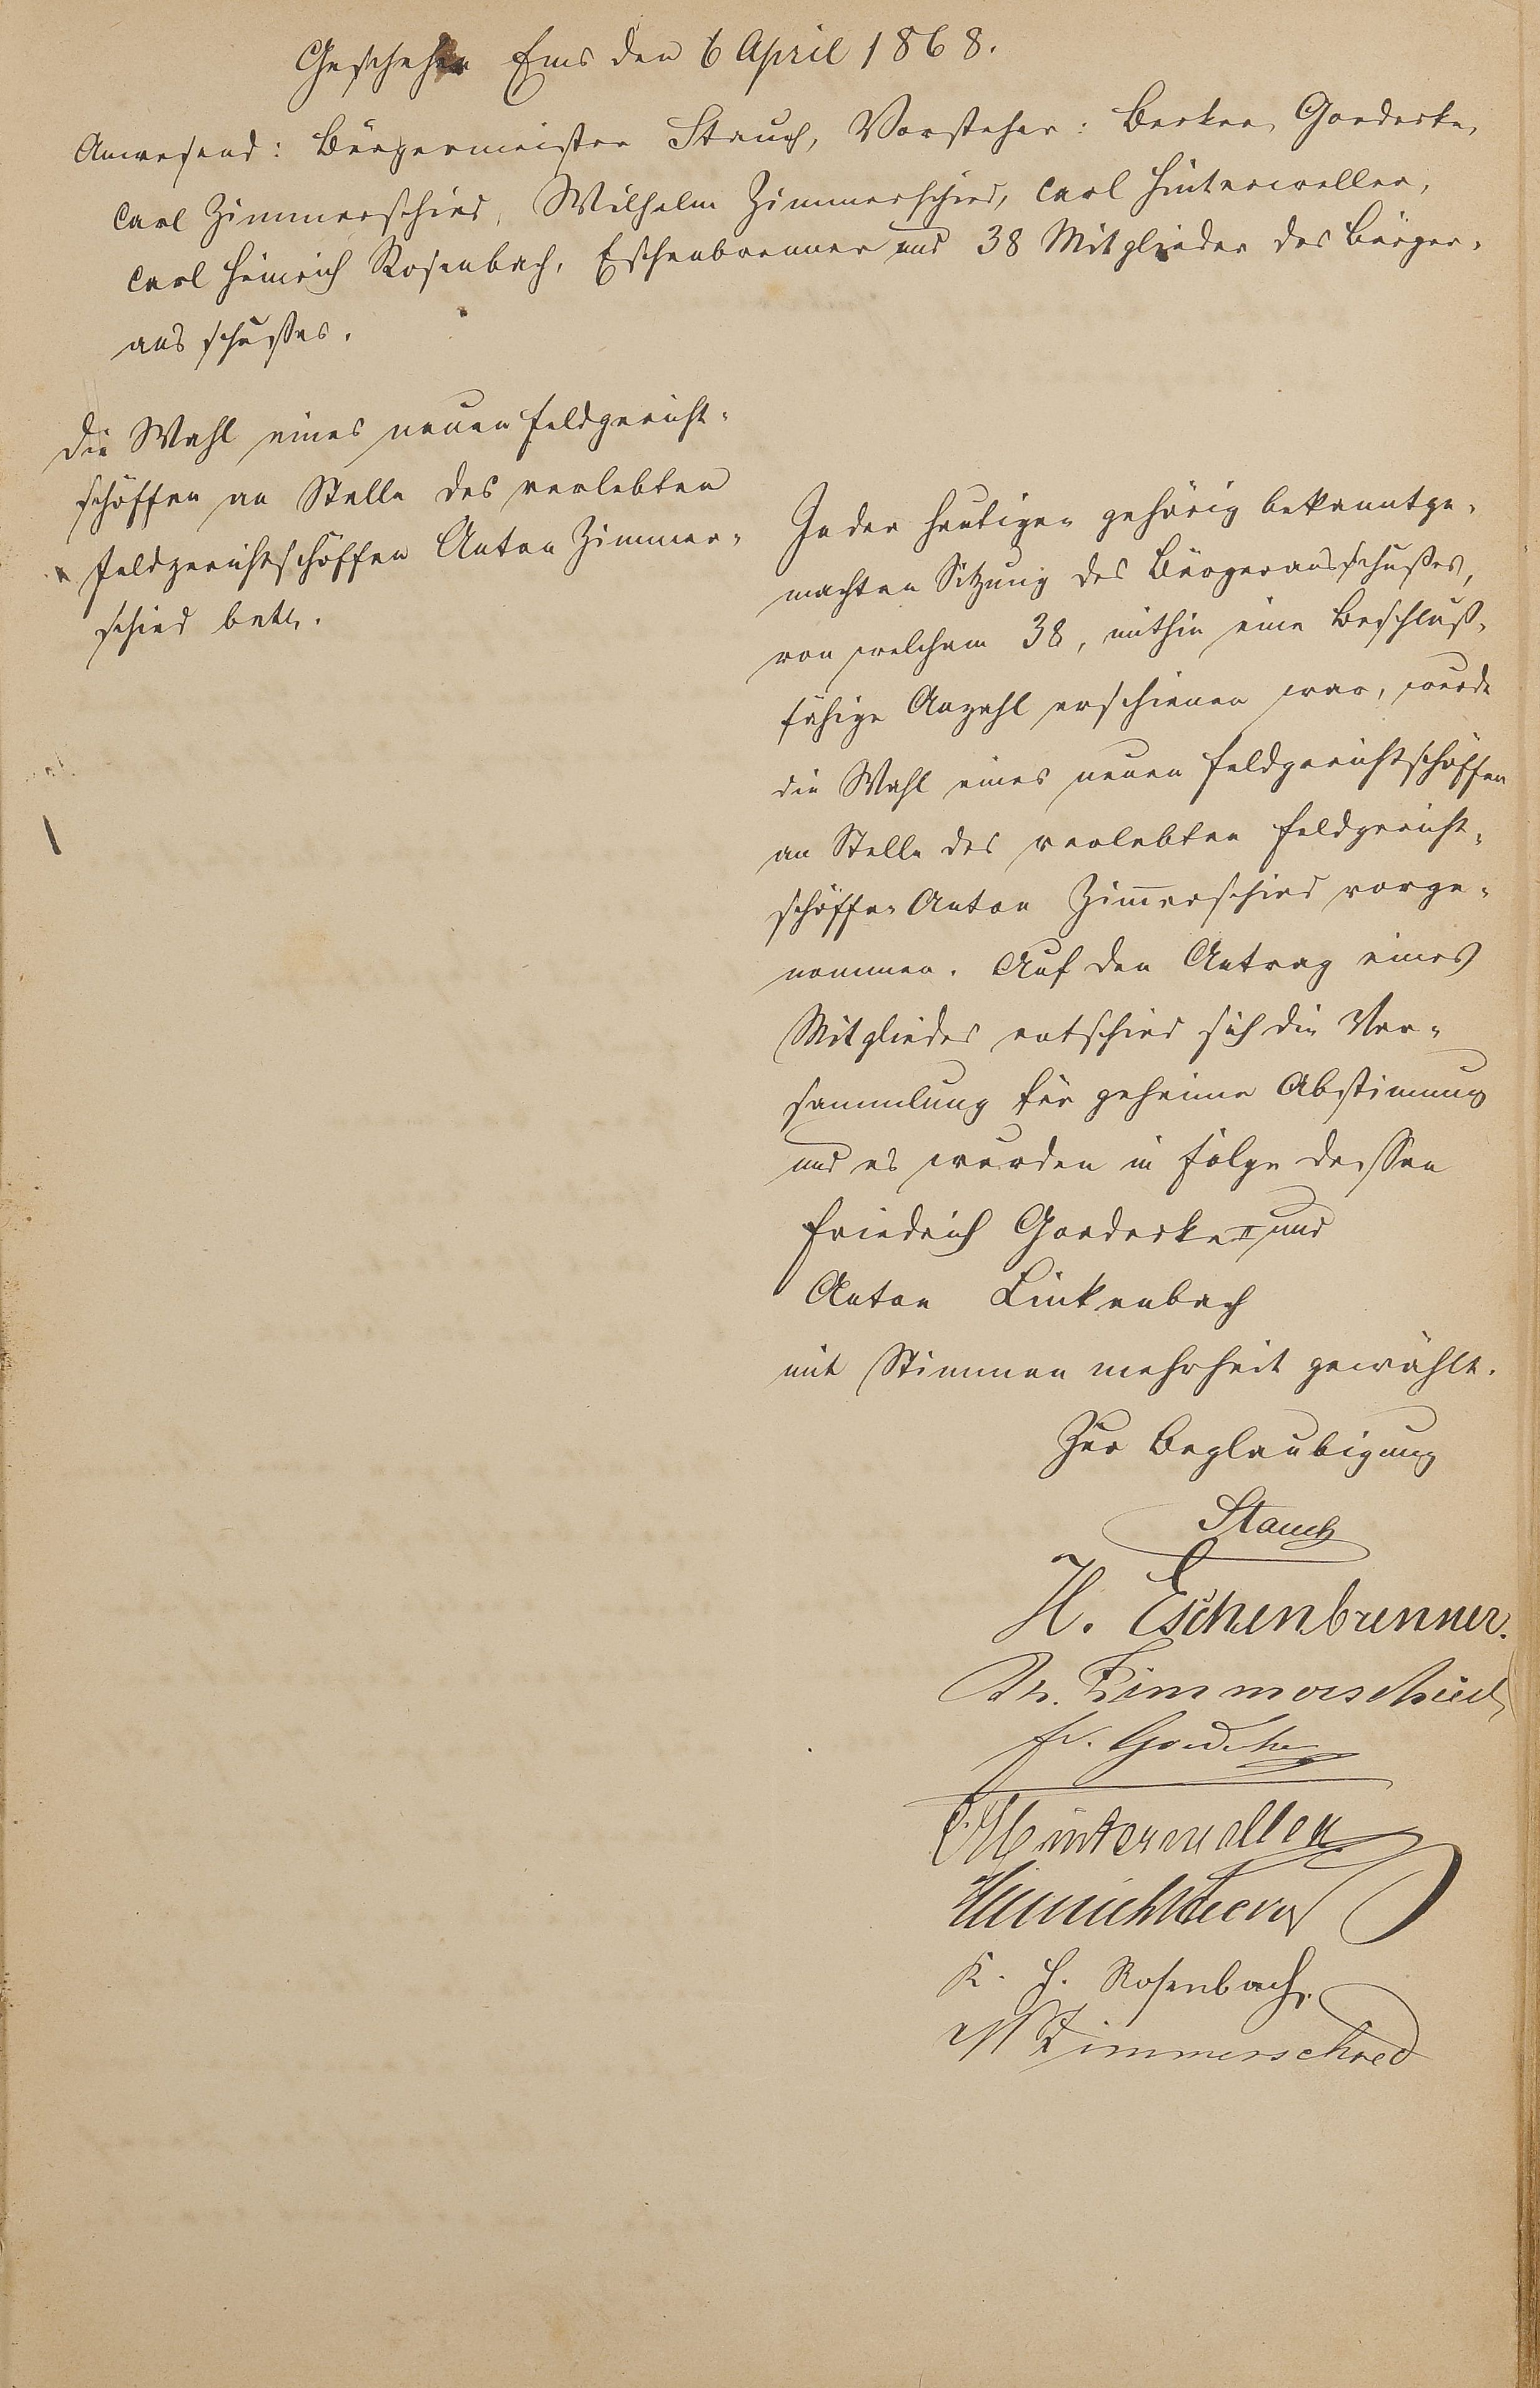 Geschehen Ems den 6 April 1868.
Anwesend: Bürgermeister Stauch, Vorsteher: Becker, Goedecke,
Carl Zimmerschied, Wilhelm Zimmerschied, Carl Hinterweller,
Carl Heinrich Rosenbach, Eschenbrenner und 38 Mitglieder des Bürger-
ausschußes.
Die Wahl eines neuen Feldgericht-
schöffen an Stelle des verlebten
Feldgerichtschöffen Anton Zimmer-
schied betr.
In der heutigen gehörig bekanntge-
machten Sitzung des Bürgerausschußes,
von welchem 38, mithin eine beschluß-
fähige Anzahl erschienen war, wurde
die Wahl eines neuen Feldgerichtschöffen
an Stelle des verlebten Feldgericht-
schöffen Anton Zim̅erschied vorge-
nommen. Auf den Antrag eines
Mitgliedes entschied sich die Ver-
sammlung für geheime Abstimung
und es wurden in Folge dessen
Friedrich Goedecke II und
Anton Linkenbach
mit Stimmen mehrheit gewählt.
Zur Beglaubigung
Stauch
H. Eschenbrenner.
Zimmerschied
Fr. Goedecke
C. Hinterweller
Heinrich
K. H. Rosenbach.
W Zimmerschied